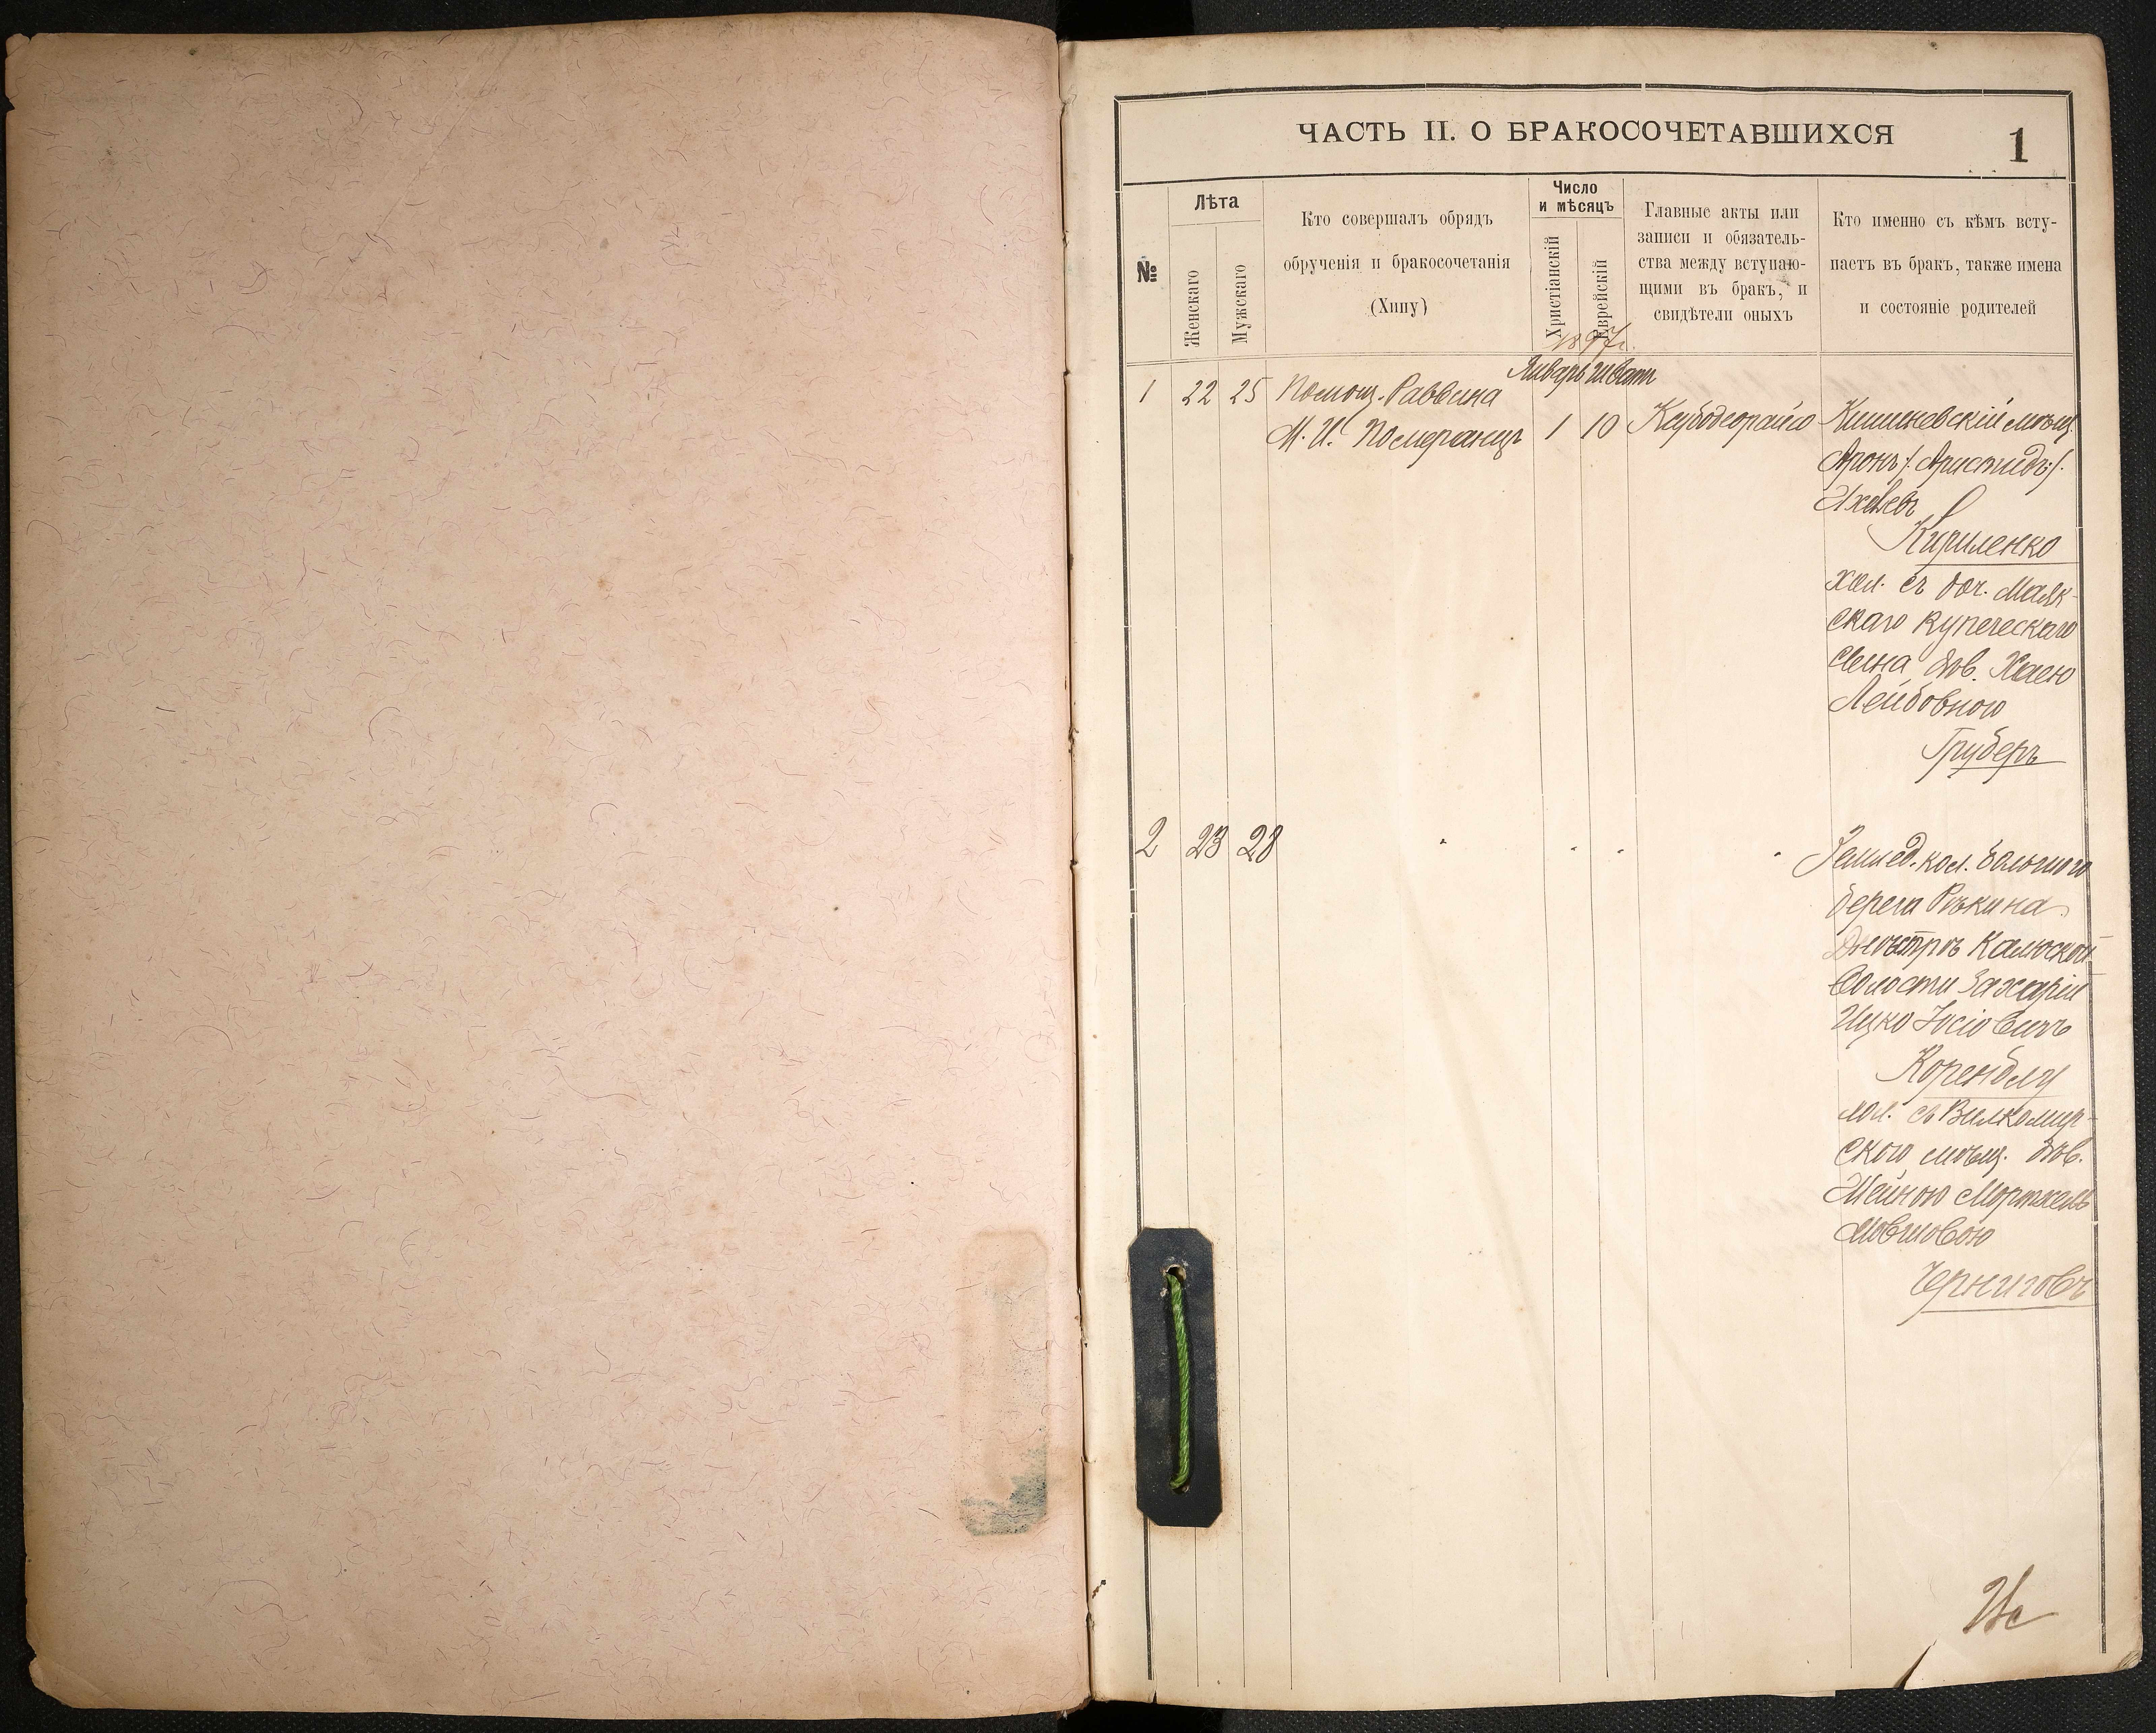 ЧАСТЬ II. О БРАКОСОЧЕТАВШИХСЯ
1
№
Лѣта
Женскаго
Мужскаго
Кто совершалъ обрядъ
обрученія и бракосочетанія
(Хипу)
Число
и мѣсяцъ
Христіанскій
Еврейскій
Главные акты или
записи и обязатель-
ства между вступаю-
щими въ бракъ, и
свидѣтели оныхъ
Кто именно съ кѣмъ всту-
паетъ въ бракъ, также имена
и состояніе родителей
1897г.
Январь Шватъ
1 22 25 Помощ. Раввина
М. И. Померанцъ 1 10
Кишиневскій мѣщ.
Аронъ /: Аристидъ :/
Кириленко
хол. съ доч. Маяк-
скаго купеческаго
сына дѣв. Хаею
Лейбовною
Груберъ
2 23 28
Землед. кол.
берега
Днѣстръ Калюской
Волости Захарій
Ицко Іосіовичъ
Коренблу
хол. съ Вилкомир-
скою мѣщ. дѣв.
Шейною Мортхель
Мовшовою
Черниговъ